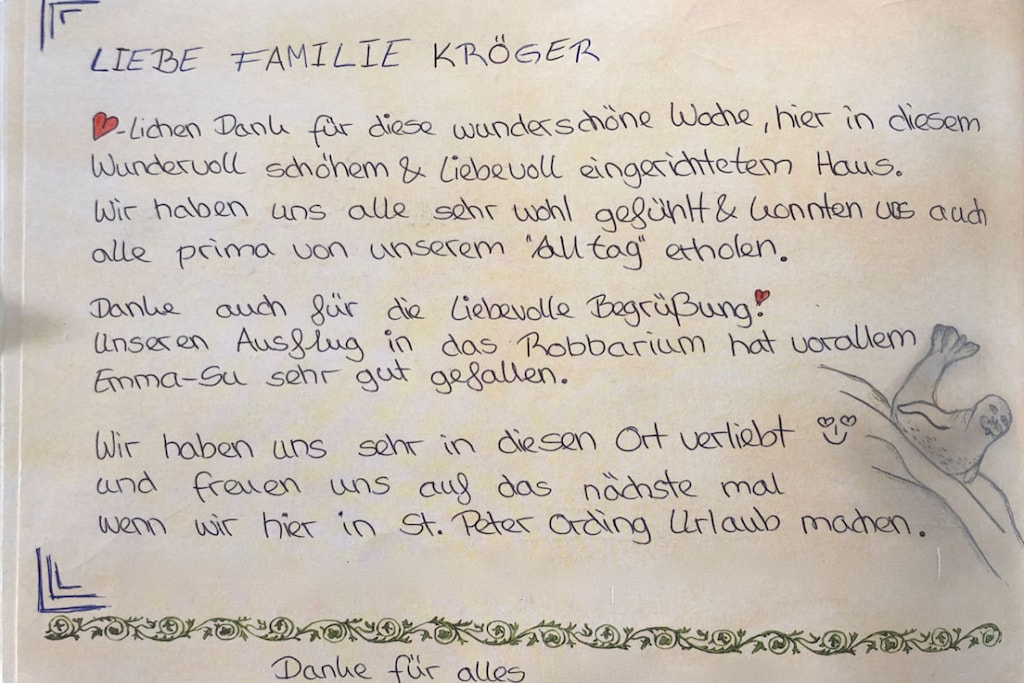 LIEBE FAMILIE KRÖGER
❤-lichen Dank für diese wunderschöne Woche, hier in diesem
Wundervoll schönem & Liebevoll eingerichtetem Haus.
Wir haben uns alle sehr wohl gefühlt & konnten uns auch
alle prima von unserem "Alltag" erholen.
Danke auch für die Liebevolle Begrüßung!
Unseren Ausflug in das Robbarium hat vorallem
Emma-Su sehr gut gefallen.
Wir haben uns sehr in diesen Ort verliebt
und freuen uns auf das nächste mal
wenn wir hier in St. Peter Ording Urlaub machen.
Danke für alles